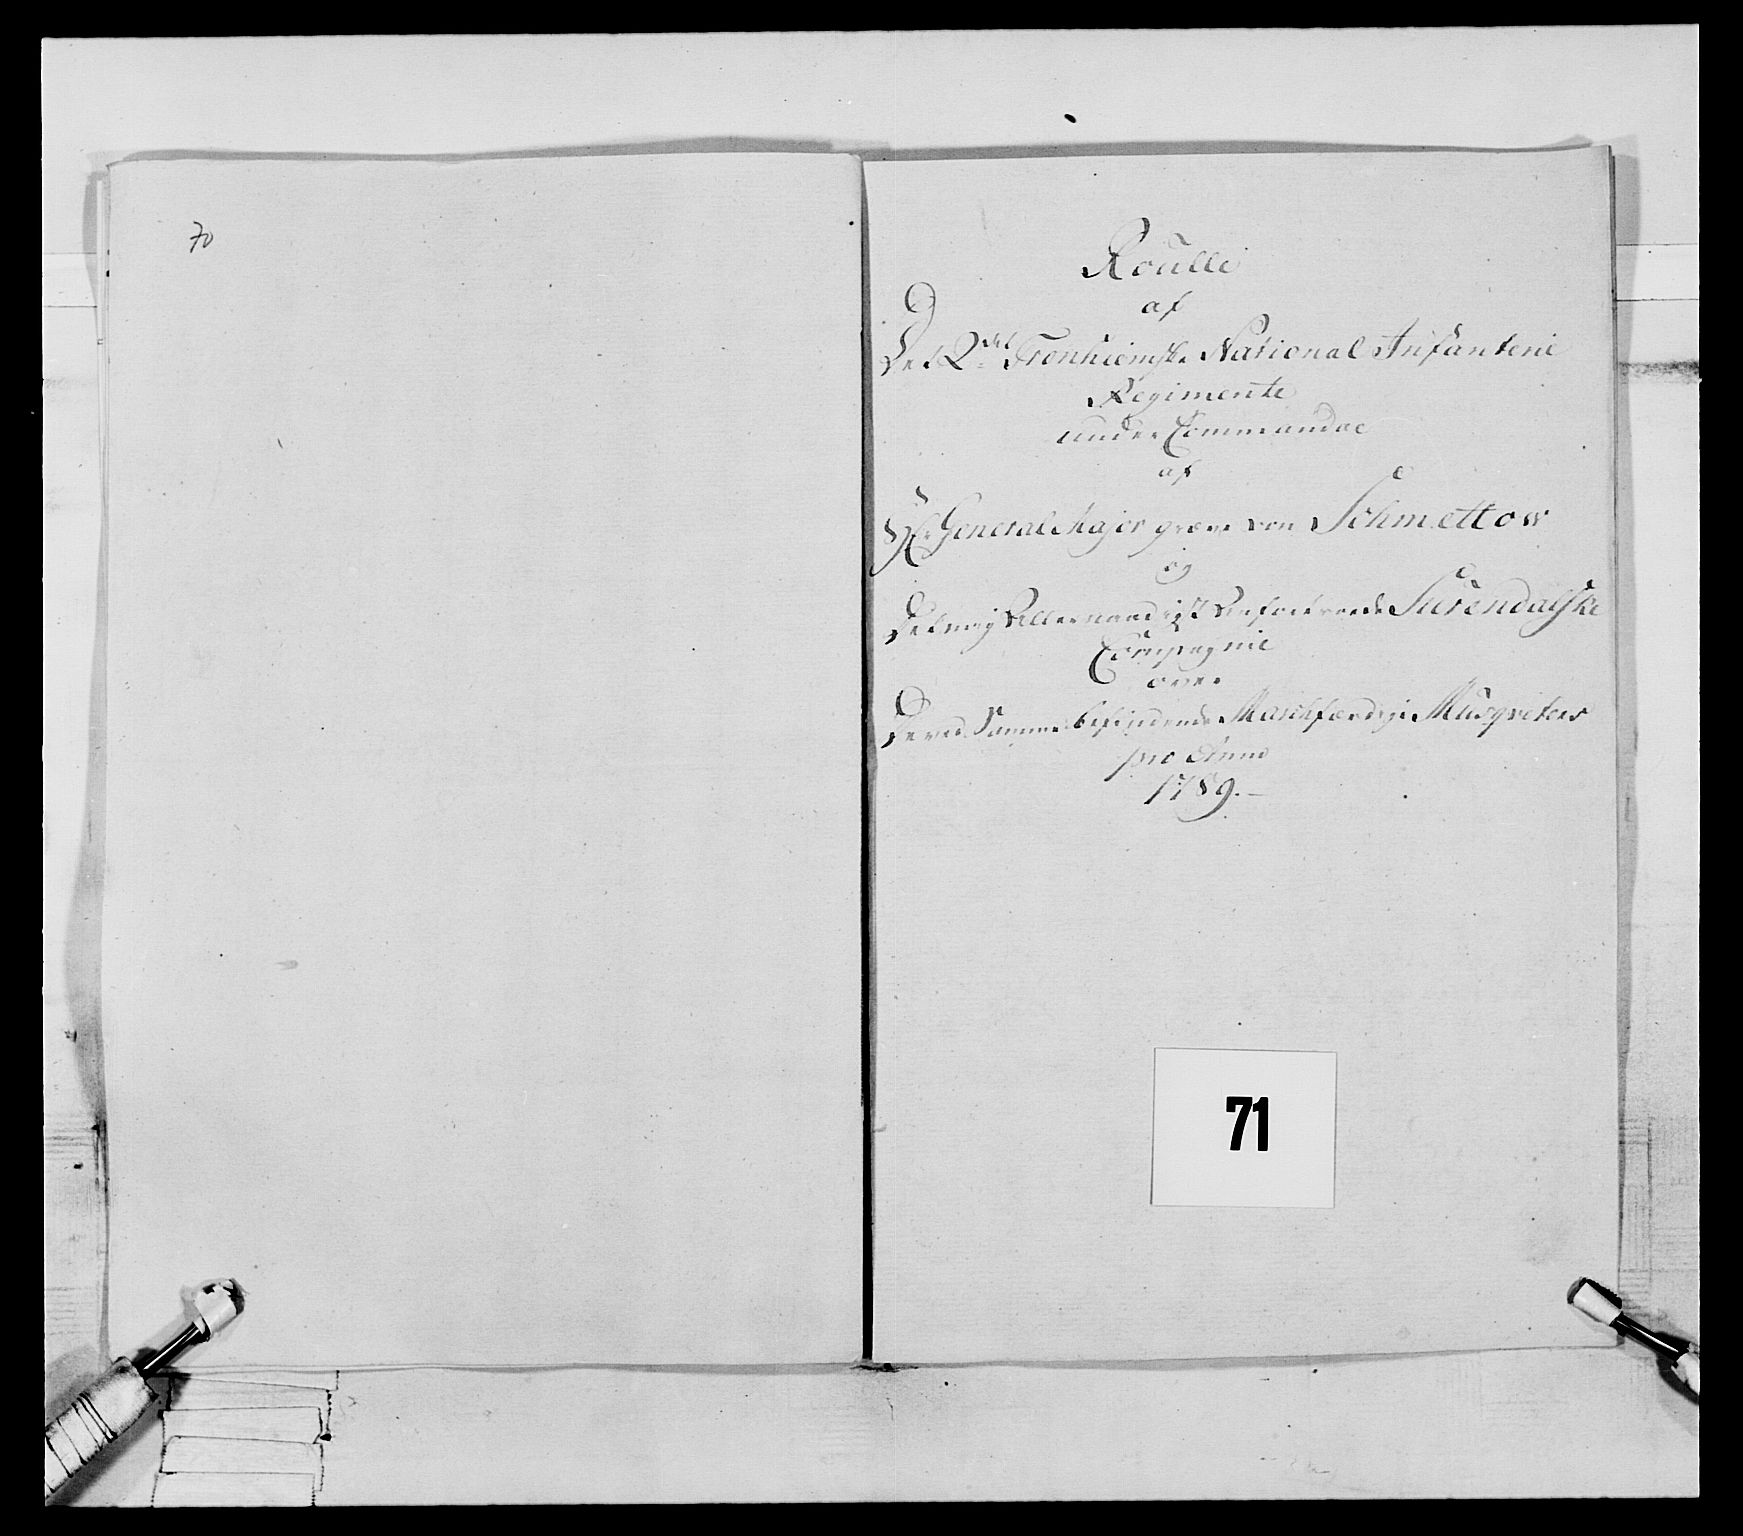 70
Roulle
af
Det 2det Tronhiemske National Infanterie
Regimente
under Commandae
af
Hr General Major greve von Schmettow
og
Det mig Allernaadigst Anfortroede Surendalske
Compagnie
over
De ved Samme befindende Marschfærdige Musqveteer
pro Anno
1789.
71